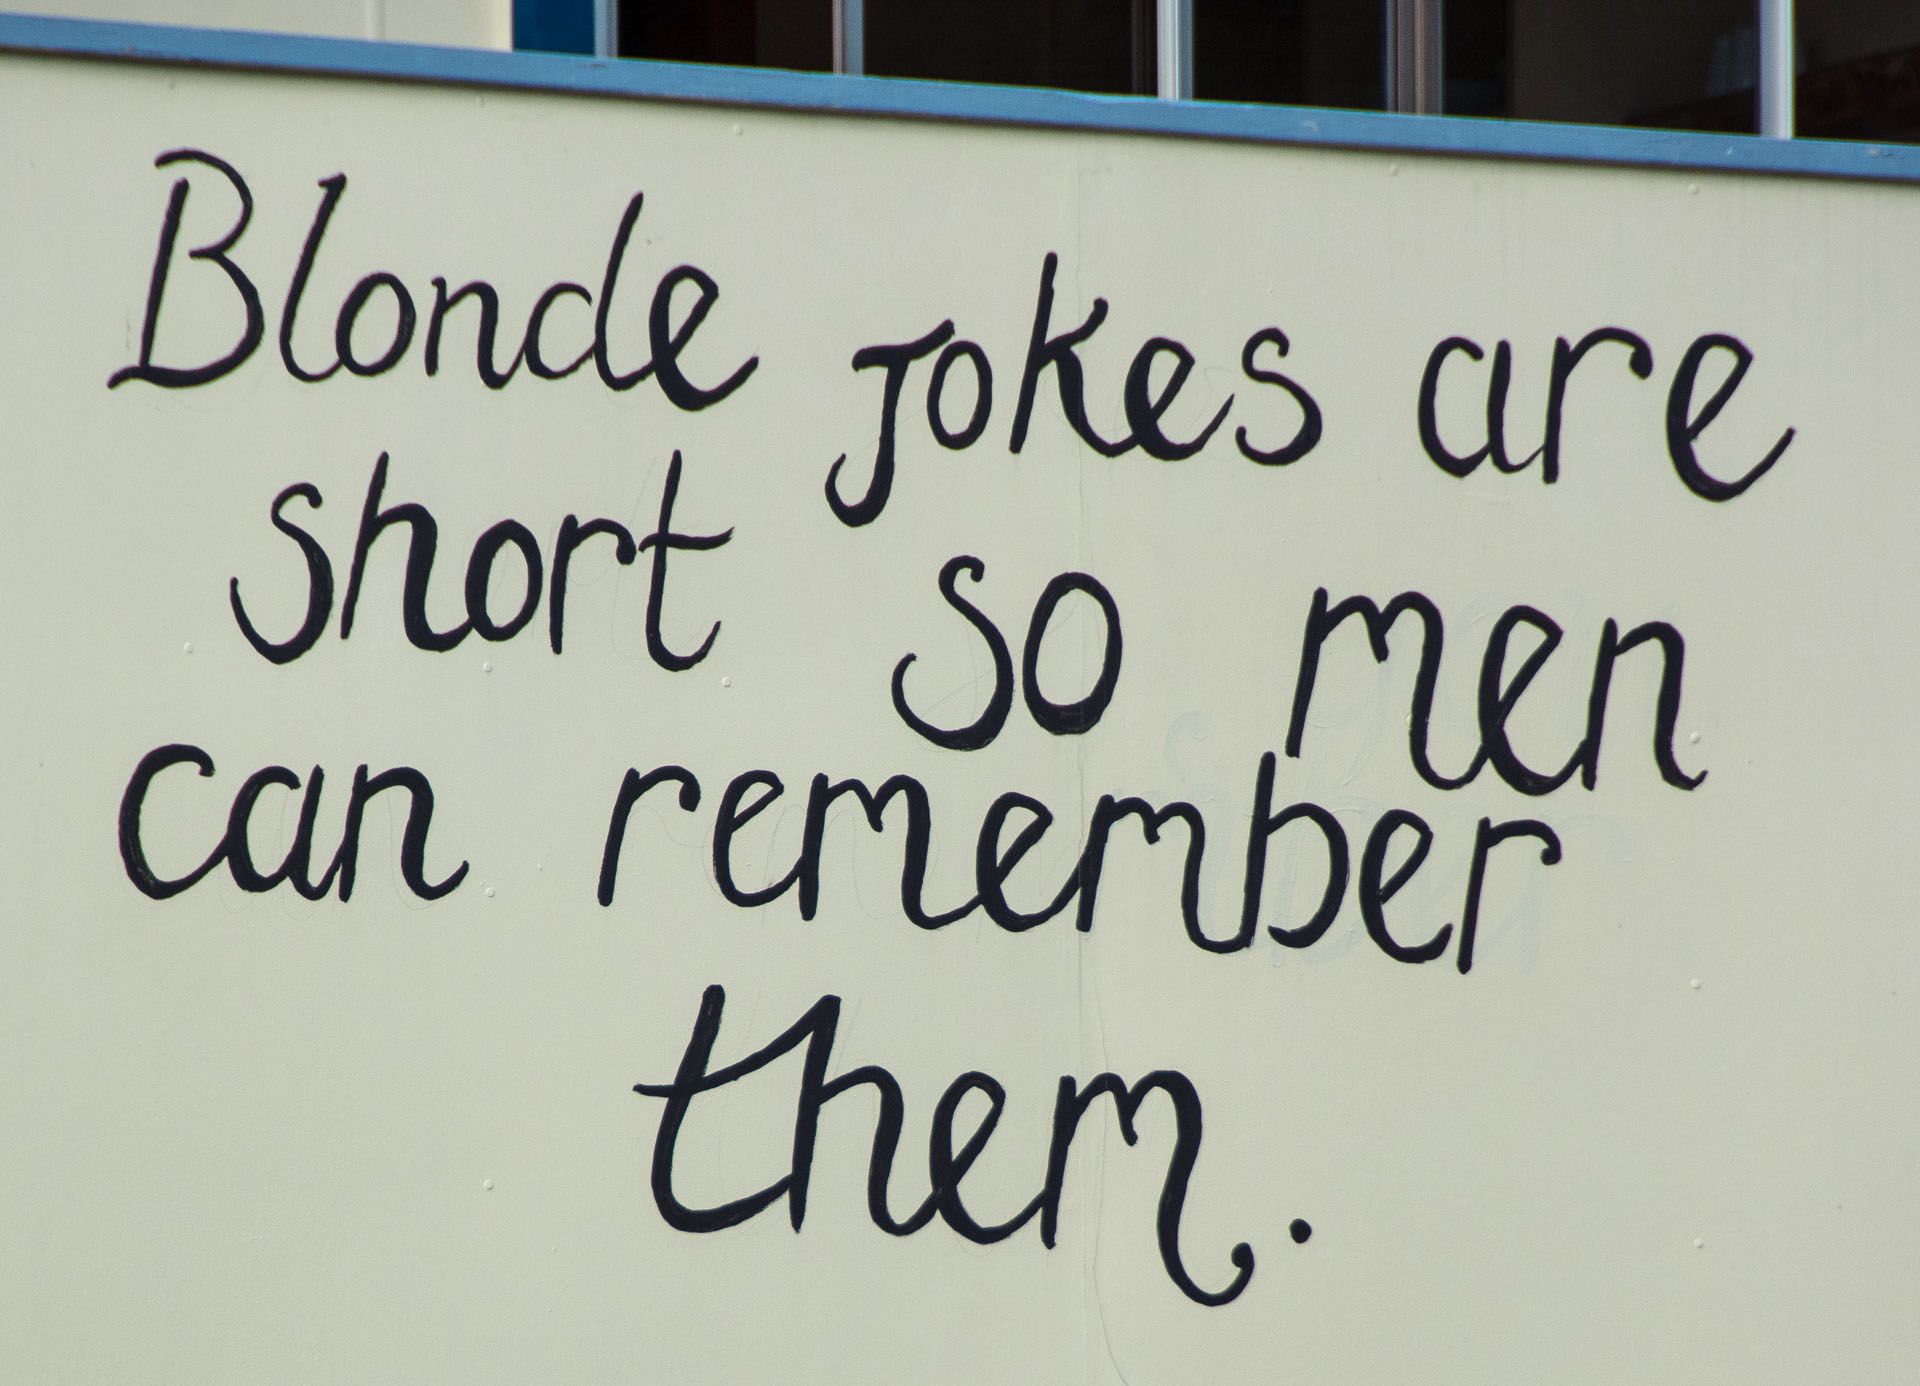 Blonde jokes are
short so men
can remember
them.